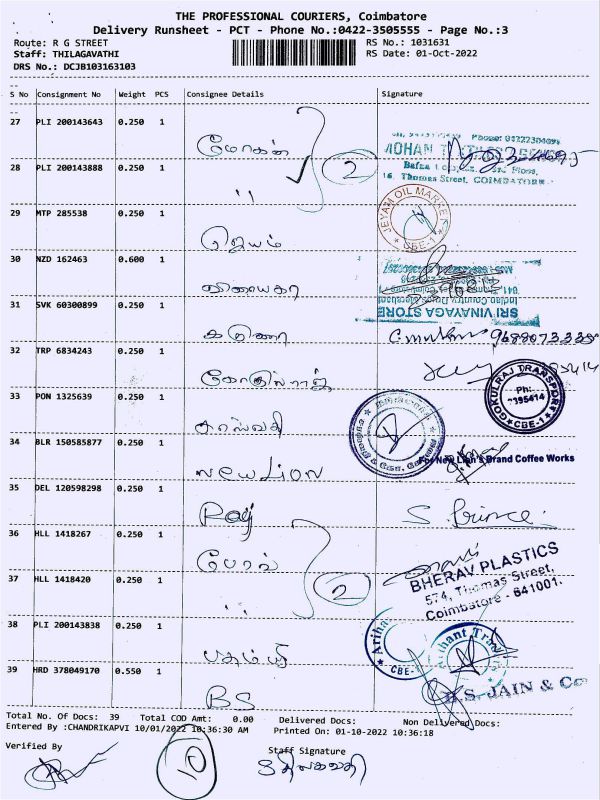 THE PROFESSIONAL COURIERS, Coimbatore
Delivery Runsheet - PCT - Phone No.:0422-3505555 - Page No.:3
Route: R G STREET RS No.: 1031631
Staff: THILAGAVATHI RS Date: 01-Oct-2022
DRS No.: DCJB103163103
S No Consignment No Weight PCS Consignee Details Signature
27 PLI 200143643 0.250 1 மோகன்
MOHAN
16, Thomas Street, COIMBATORE
28 PLI 200143888 0.250 1 " 2
JEYAM OIL MARKET CBE-1
29 MTP 285538 0.250 1 ஜெயம்
30 NZD 162463 0.600 1 விநாயகா
SRI VINAYAGA STORE
Indian Country Drugs Merchant
31 SVK 60300899 0.250 1 கருணா
32 TRP 6834243 0.250 1 கோகுல்ராஜ்
GOKULRAJ TRANSPORT Ph: CBE-1
33 PON 1325639 0.250 1
34 BLR 150585877 0.250 1 New Lion
For New Lion's Brand Coffee Works
35 DEL 120598298 0.250 1 Raj S Prince
36 HLL 1418267 0.250 1
37 HLL 1418420 0.250 1 " 2
BHERAV PLASTICS
574, Thomas Street,
Coimbatore - 641001.
38 PLI 200143838 0.250 1
Arihant Tra
CBE-1
39 HRD 378049170 0.550 1 BS
S. JAIN & Co
Total No. Of Docs: 39 Total COD Amt: 0.00 Delivered Docs: Non Delivered Docs:
Entered By :CHANDRIKAPVI 10/01/2022 10:36:30 AM Printed On: 01-10-2022 10:36:18
Verified By 10 Staff Signature
திலகவதி